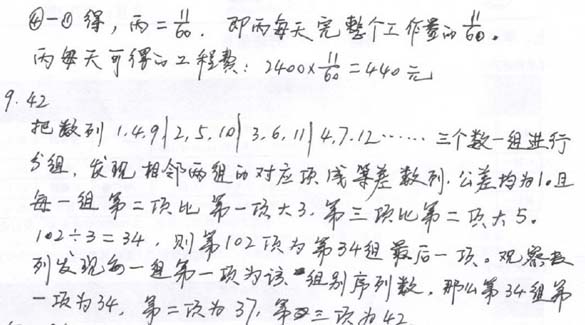 ④-①得，丙=11/60．即丙每天完整个工作量的11/60。
丙每天可得的工程费：2400×11/60=440元
9.42
把数列1.4.9|2.5.10|3.6.11|4.7.12……三个数一组进行
分组，发现相邻两组的对应项成等差数列．公差均为1。且
每一组第二项比第一项大3．第三项比第二项大5。
102÷3=34，则第102项为第34组最后一项。观察数
列发现每一组第一项为该组别序列数．那么第34组第
一项为34，第二项为37，第三项为42